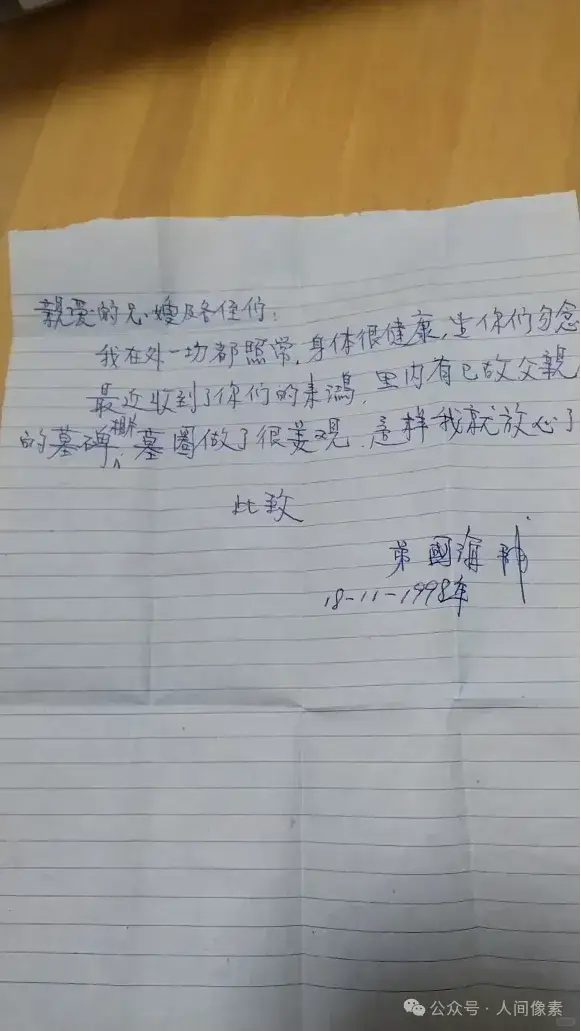 親爱的兄.嫂及各侄们:
我在外一切都照常,身体很健康,望你们勿念
最近收到了你们的来鴻,里内有已故父親
的墓碑相片,墓圈做了很美观,這样我就放心了
此致
弟 國海
18-11-1998年
公众号·人间像素